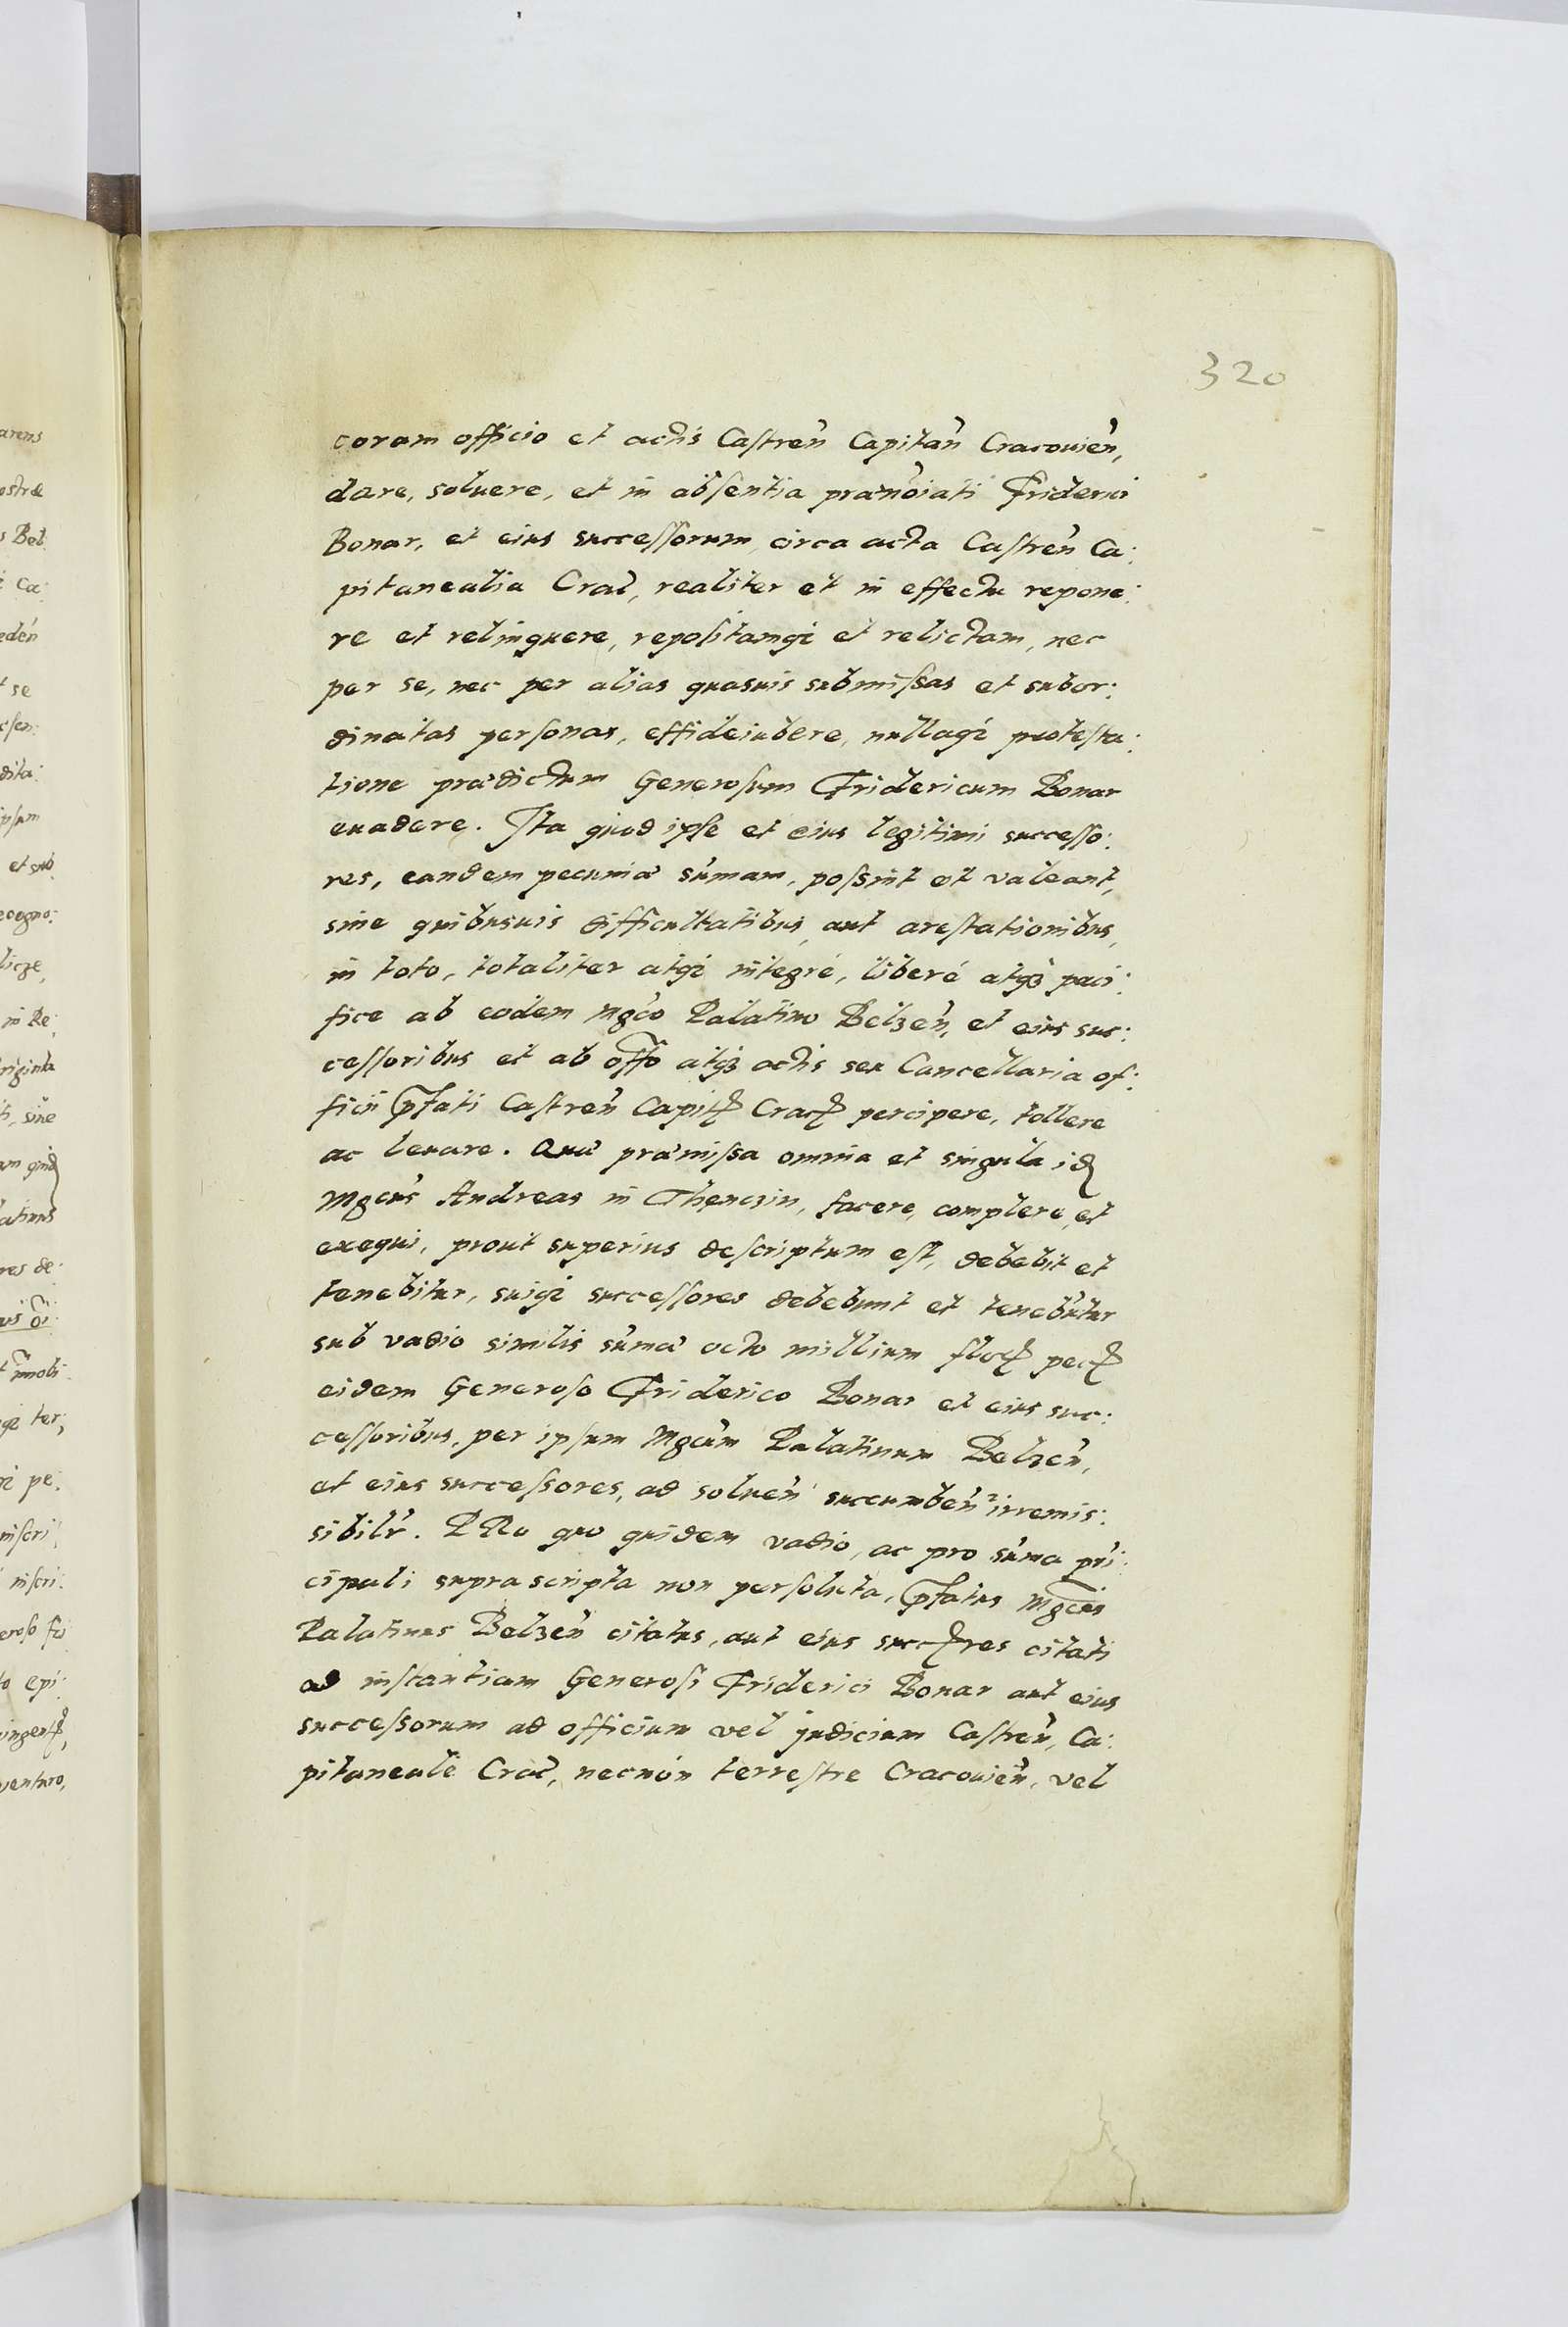 320
coram officio et actis Castreń Capitań Cracouień,
dare, soluere, et in absentia prænoiati Friderici
Bonar, et eius successorum, circa acta Castreń Ca:
pitanealia Crac, realiter et in effectu repone:
re et relinquere, repositamq; et relictam, nec
per se, nec per alias quasuis submissas et subor:
dinatas personas, effideiubere, nullaq; protesta:
tione prædictum Generosum Fridericum Bonar
euadere. Ita quod ipse et eius legitimi successo:
res, eandem pecuniæ sumam, possint et valeant,
sine quibusuis difficultatibus, aut arestationibus,
in toto, totaliter atq; integré, liberé atq; paci:
fice ab eodem Mgco Palatino Belzeń, et eius suc:
cessoribus et ab offo atq; actis seu Cancellaria of:
ficii pfati Castreń Capit Crac percipere, tollere
ac leuare. Quæ præmissa omnia et singula, id
Mgcus Andreas in Thenczin, facere, complere, et
exequi, prout superius descriptum est, debebit et
tenebitur, suiq; successores debebunt et tenebutur
sub vadio similis sumæ octo millium flor pec
eidem Generoso Friderico Bonar et eius suc:
cessoribus, per ipsum Mgcum Palatinum Belzeń,
et eius successores, ad soluen succumben irremis:
sibilr. PRo quo quidem vadio, ac pro suma pri:
cipali suprascripta non persoluta, pfatus Mgcus
Palatinus Belzeń citatus, aut eius succres citati
ad instantiam Generosi Friderici Bonar aut eius
successorum ad officium vel judicium Castreń, Ca:
pitaneale Crac, necnón terrestre Cracouień, vel